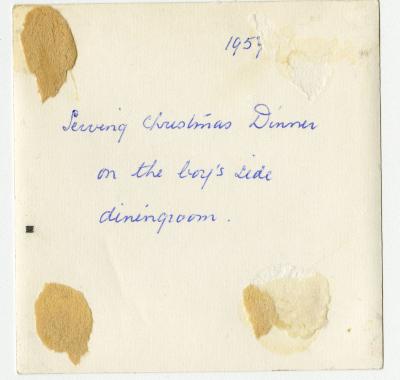 1959
Serving Christmas Dinner
on the boy's side
diningroom.